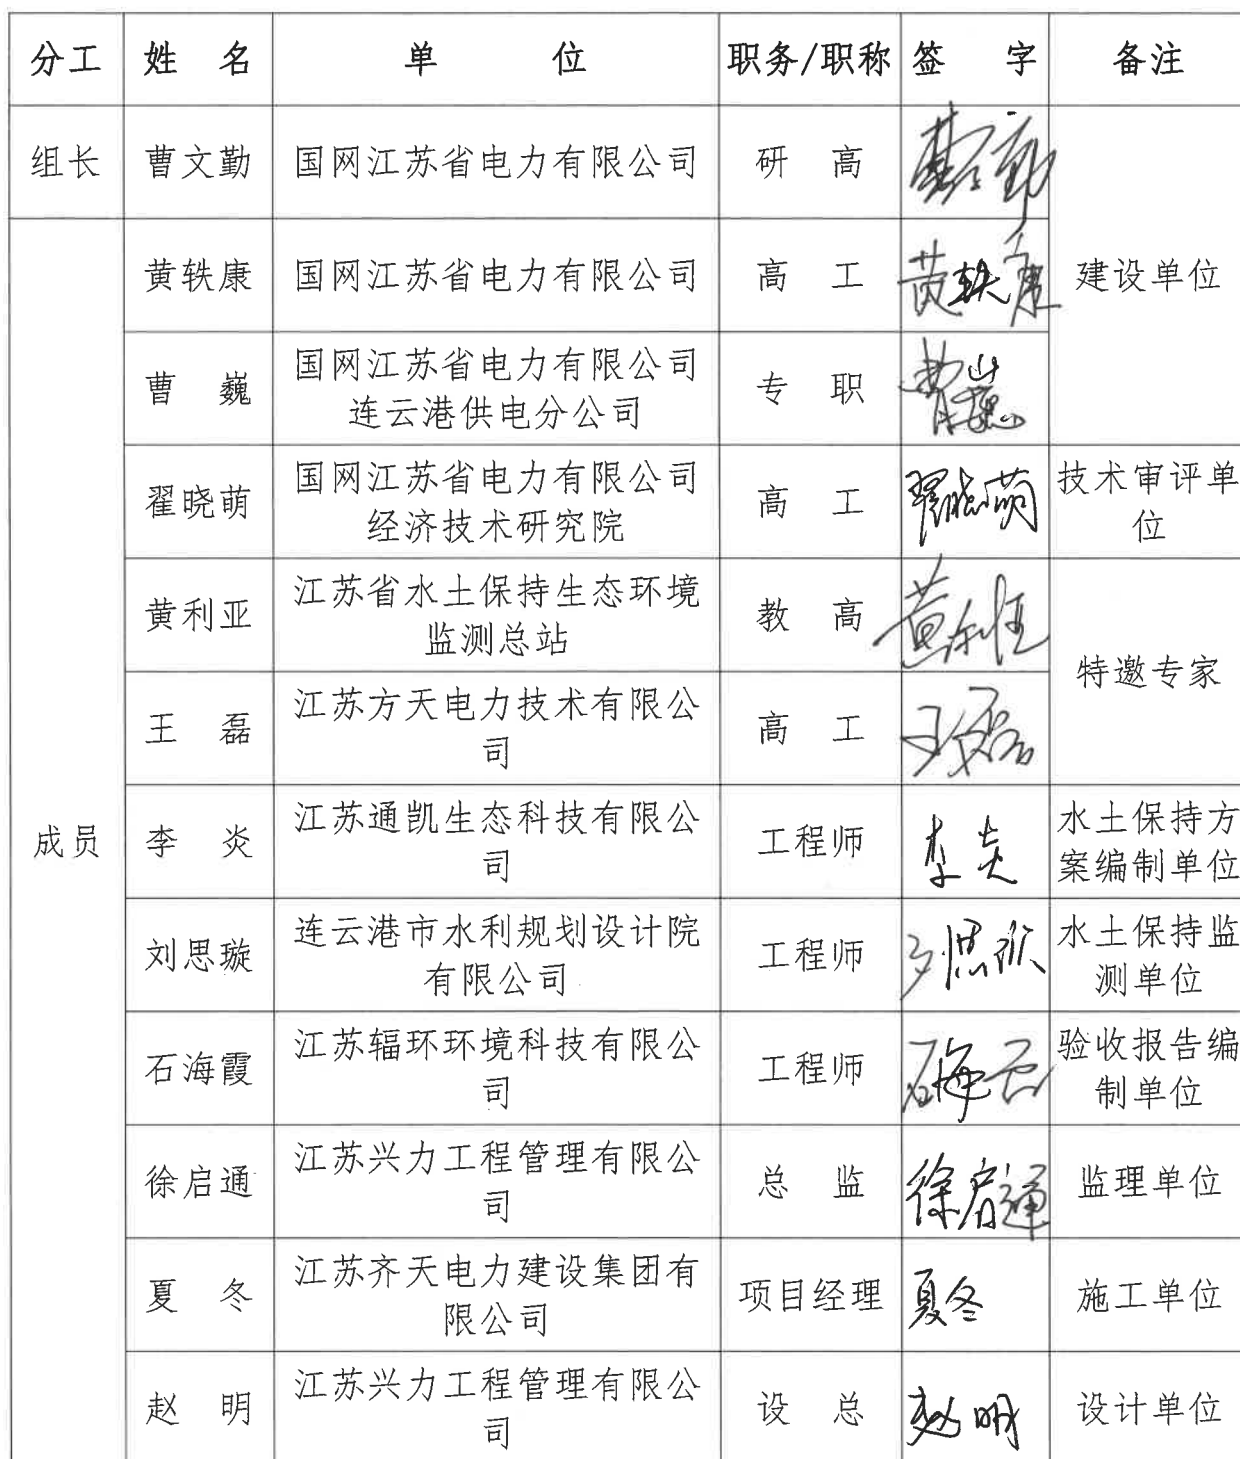 分工 姓 名 单 位 职务/职称 签 字 备注
组长 曹文勤 国网江苏省电力有限公司 研 高
黄轶康 国网江苏省电力有限公司 高 工 黄轶康 建设单位
曹 巍 国网江苏省电力有限公司
连云港供电分公司 专 职 曹巍
翟晓萌 国网江苏省电力有限公司
经济技术研究院 高 工 翟晓萌 技术审评单
位
黄利亚 江苏省水土保持生态环境
监测总站 教 高
特邀专家
王 磊 江苏方天电力技术有限公
司 高 工 王磊
成员 李 炎 江苏通凯生态科技有限公
司 工程师 李炎 水土保持方
案编制单位
刘思璇 连云港市水利规划设计院
有限公司 工程师 刘思璇 水土保持监
测单位
石海霞 江苏辐环环境科技有限公
司 工程师 石海霞 验收报告编
制单位
徐启通 江苏兴力工程管理有限公
司 总 监 徐启通 监理单位
夏 冬 江苏齐天电力建设集团有
限公司 项目经理 夏冬 施工单位
赵 明 江苏兴力工程管理有限公
司 设 总 赵明 设计单位